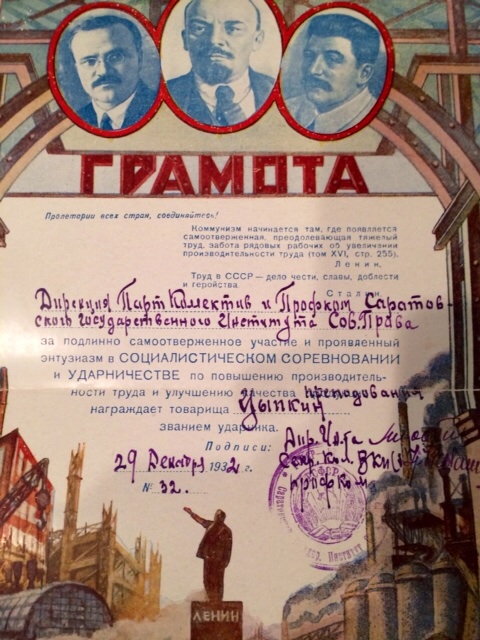 ГРАМОТА
Пролетарии всех стран, соединяйтесь!
Коммунизм начинается там, где появляется
самоотверженная, преодолевающая тяжелый
труд, забота рядовых рабочих об увеличении
производительности труда (том XVI, стр. 255).
Ленин.
Труд в СССР — дело чести, славы, доблести
и геройства.
Сталин.
Дирекция Парт Колектив и Профком Саратов-
ского государственного Института Сов. Права
за подлинно самоотверженное участие и проявленный
энтузиазм в СОЦИАЛИСТИЧЕСКОМ СОРЕВНОВАНИИ
и УДАРНИЧЕСТВЕ по повышению производитель-
ности труда и улучшению качества преподования
награждает товарища Цыпкин
званием ударника.
Подписи:
Дир. Ин-та
29 Декабря 1932 г.
Секр. Кол. ВКП(б)
№ 32.
Профком
ЛЕНИН